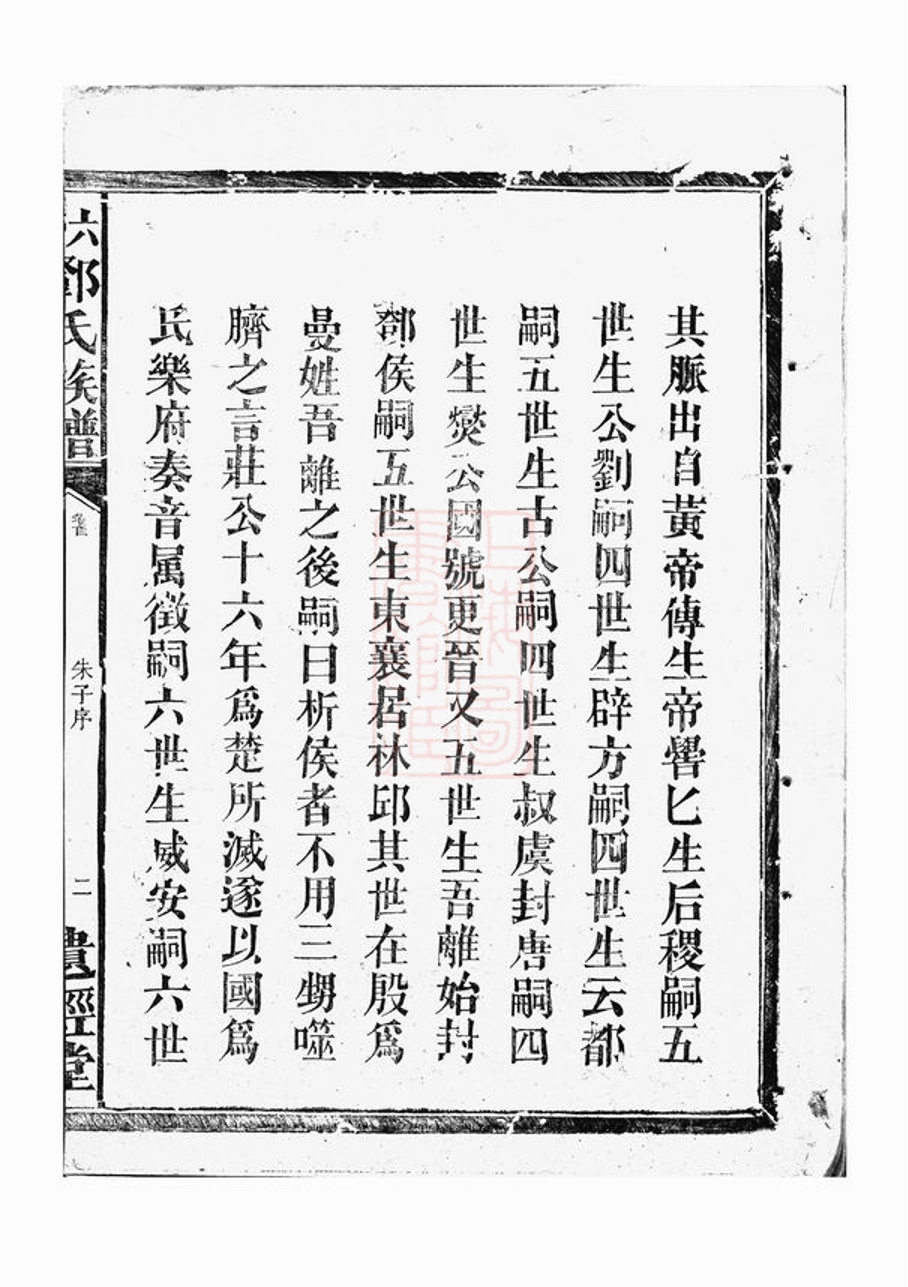 其脈出自黃帝傳生帝嚳匕生后稷嗣五
世生公劉嗣四世生辟方嗣四世生云都
嗣五世生古公嗣四世生叔虞封唐嗣四
世生爕公國號更晉又五世生吾離始封
鄧侯嗣五世生東襄居袾邱其世在殷爲
曼姓吾離之後嗣曰析侯者不用三甥噬
臍之言莊公十六年爲楚所滅遂以國爲
氏樂府奏音属徵嗣六世生威安嗣六世
六鄧氏族譜
朱子序
二
遺經堂